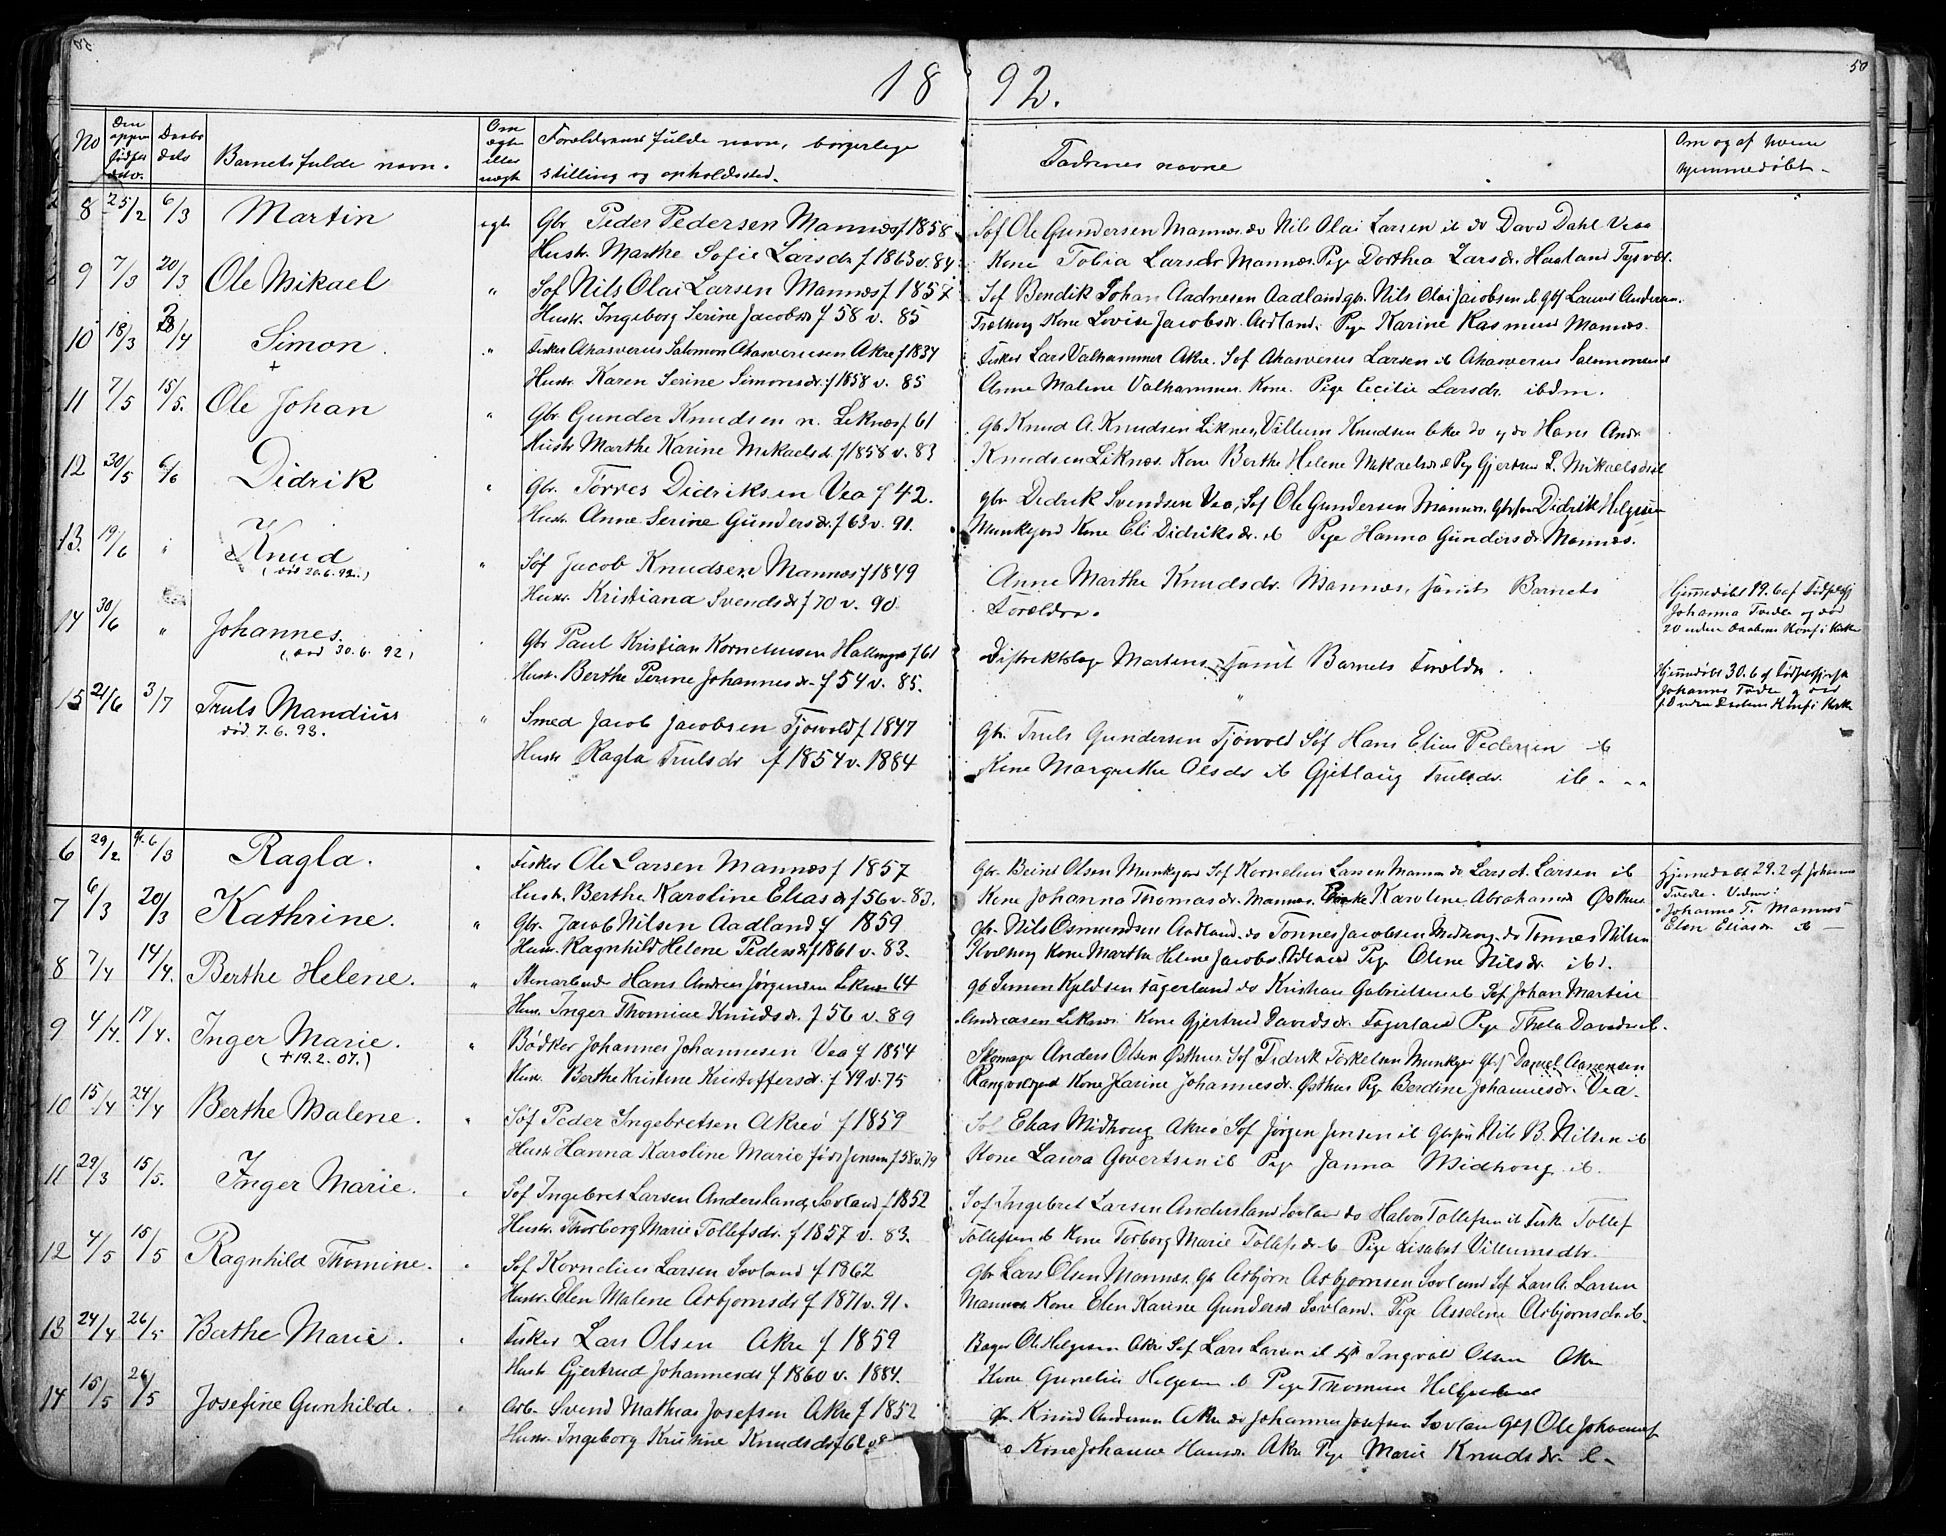 18 92.
50
No
Daabs
dels
Barnets fulde navn.
Om
egte
eller
uegte
Foreldrenes fulde navn, borgerlige
stilling og opholdssted.
Fadrenes navne
Om og af hvem
hjemmedøbt.
8 25/2 6/3 Martin egte Gbr. Peder Pedersen Mannes f 1858
Søf Ole Gundersen Mannes do Nils Olai Larsen ib do David Dahl Vea
Hustr. Marthe Sofie Larsdr f 1863 v. 84
Kone Tobia Larsdr Mannes. Pige Dorthea Larsdr. Haaland Tysvær.
9 7/3 20/3 Ole Mikael " Søf Nils Olai Larsen Mannes f 1857
Søf Bendik Johan Aadnesen Aadland gbr. Nils Olai Jacobsen ib
Hustr. Ingeborg Serine Jacobsdr f 58 v. 85
Kone Lovise Jacobsdr. Aadland. Pige Karine Rasmusd Mannes.
10 18/3 /4 Simon. " Fisker Ahasverus Salomon Ahasverusen Akre f 1834
Fisker Lars Valhammer Akre. Søf Ahasverus Larsen ib Ahasverus
+
Hustr. Karen Serine Simonsdr. f 1858 v. 85
Anne Malene Valhammer Kone. Pige Cecilie Larsdr. ibdm.
11 7/5 15/5. Ole Johan " Gbr Gunder Knudsen n. Liknes f 61
Gb Knud A. Knudsen Liknes, Villum Knudsen do Hans Andr
Hustr Marthe Karine Mikaelsdr f 1858 v. 83
Knudsen Liknes. Kone Berthe Helene Mikaelsdr ib Pige Gjertrud Mikaelsdr
12 30/5 6/6 Didrik " Gbr. Torres Didriksen Vea f 42.
gbr Didrik Svendsen Vea, Søf Ole Gundersen Mannes. Didrik Helgesen
Hustr. Anne Serine Gundersdr. f 63 v. 91.
Munkejord Kone Eli Didriksdr. ib Pige Hanna Gundersdr Mannes.
13. 19/6 " Knud
(død 20.6.92.)
" Søf Jacob Knudsen Mannes f 1849
Anne Marthe Knudsdr. Mannes, samt Barnets
Hustr Kristiana Svendsdr f 70 v. 90
Foreldre.
Hjemmedøbt 19.6 af
Johanna Tvedte og død
20 uden Daabens Konf i Kirke
14 30/6 " Johannes.
(død 30.6.92)
Gbr Paul Kristian Korneliussen f 61
Distriktslæge Martens samt Barnets Foreldre.
Hustr. Berthe Perine Johannesdr f 54 v. 85.
Hjemmedøbt 30.6 af
Johanna Tvedte og død
15 21/6 3/7 Truls Mandius
død 7.6.93.
" Smed Jacob Jacobsen Tjøsvold f 1847
Gbr. Truls Gundersen Tjøsvold Søf Hans Elias Pedersen ib
Hustr Ragla Trulsdr f 1854 v. 1884
Kone Margrethe Olsdr ib Gjetlaug Trulsdr. ib.
6 29/2 6/3 Ragla. " Fisker Ole Larsen Mannes f 1857
Gbr. Beint Olsen Munkejord Søf Kornelius Larsen Mannes do Lars Larsen ib
Hustr. Berthe Karoline Eliasdr f 56 v. 83.
Kone Johanna Thomasdr. Mannes. Karoline Abrahamsd Østhus
Hjemmedøbt 29.2 af Johanna
Tvedte. Vidner:
Johanna T. Mannes
Elen Eliasdr ib
7 6/3 20/3 Kathrine. " Gbr. Jacob Nilsen Aadland f 1859
gbr Nils Osmundsen Aadland do Tønnes Jacobsen Midhoug do Tønnes Nilsen
Hustr. Ragnhild Helene Pedersdr f 1861 v. 83.
Kone Marthe Helene Jacobsd. Aadland Pige Oline Nilsdr. ib.
8 7/4 14/4. Berthe Helene. " Stenarbeider Hans Andreas Jørgensen Liknes 64
gb Simon Kjeldsen Fagerland do Kristian Gabrielsen ib Søf Johan Martin
Hustr. Inger Thomine Knudsdr. f 56 v. 89
Andreasen Liknes Kone Gjertrud Davidsdr. Fagerland Pige Thala Davidsdr ib.
9 4/4. 17/4. Inger Marie.
(+19.2.07.)
" Bødker Johannes Johannesen Vea f 1854
Skomager Anders Olsen Østhus. Søf Didrik Torkelsen Munkejord Daniel Aanensen
Hustr. Berthe Kristine Kristoffersdr. f 49 v. 75
Kone Karine Johannesdr. Østhus Pige Berdine Johannesdr. Vea.
10 15/4 24/4 Berthe Malene. " Søf Peder Ingebretsen Akreó f 1859
Søf Elias Midhoug Akreó Søf Jørgen Jensen ib Nils B. Nilsen ib
Hustr Hanna Karoline Marie født Jensen f 58 v. 79
Kone Laura Govertsen ib Pige Janna Midhoug ib.
11 29/3 15/5. Inger Marie. " Søf Ingebret Larsen Andersland, Sævland f 1852
Søf Ingebret Larsen Andersland Sævland do Halvor Tollefsen ib Fisker Tollef
Hustr. Thorborg Marie Tollefsdr. f 1857 v. 83.
Tollefsen ib Kone Torborg Marie Tollefsdr ib Pige Lisabet Villumsdtr.
12 4/5 15/5 Ragnhild Thomine. " Søf Kornelius Larsen Sævland f 1862
Gbr Lars Olsen Mannes, Gb Asbjørn Asbjørnsen Sævland Søf Lars A. Larsen
Hustr. Elen Malene Asbjørnsdr f 1871 v. 91.
Mannes Kone Elen Karine Gundersd Sævland. Pige Asseline Asbjørnsdr. ib.
13 24/4 26/5 Berthe Marie. " Fisker Lars Olsen Akre f 1859
Bager Ole Helgesen Akre Søf Lars Larsen ib Ingvald Olsen Akre
Hustr Gjertrud Johannesdr f 1860 v. 1884.
Kone Gunelie Helgesen ib Pige Thomine
14 15/5 26/5 Josefine Gunhilde. " Arb. Svend Mathias Josefsen Akre f 1852
Knud Andersen Akre do Johannes Josefsen Sævland Ole Johannesen
Hustr. Ingeborg Kristine Knudsdr f 62
Kone Johanne Hansdr. Akre Pige Marie Knudsdr. ib